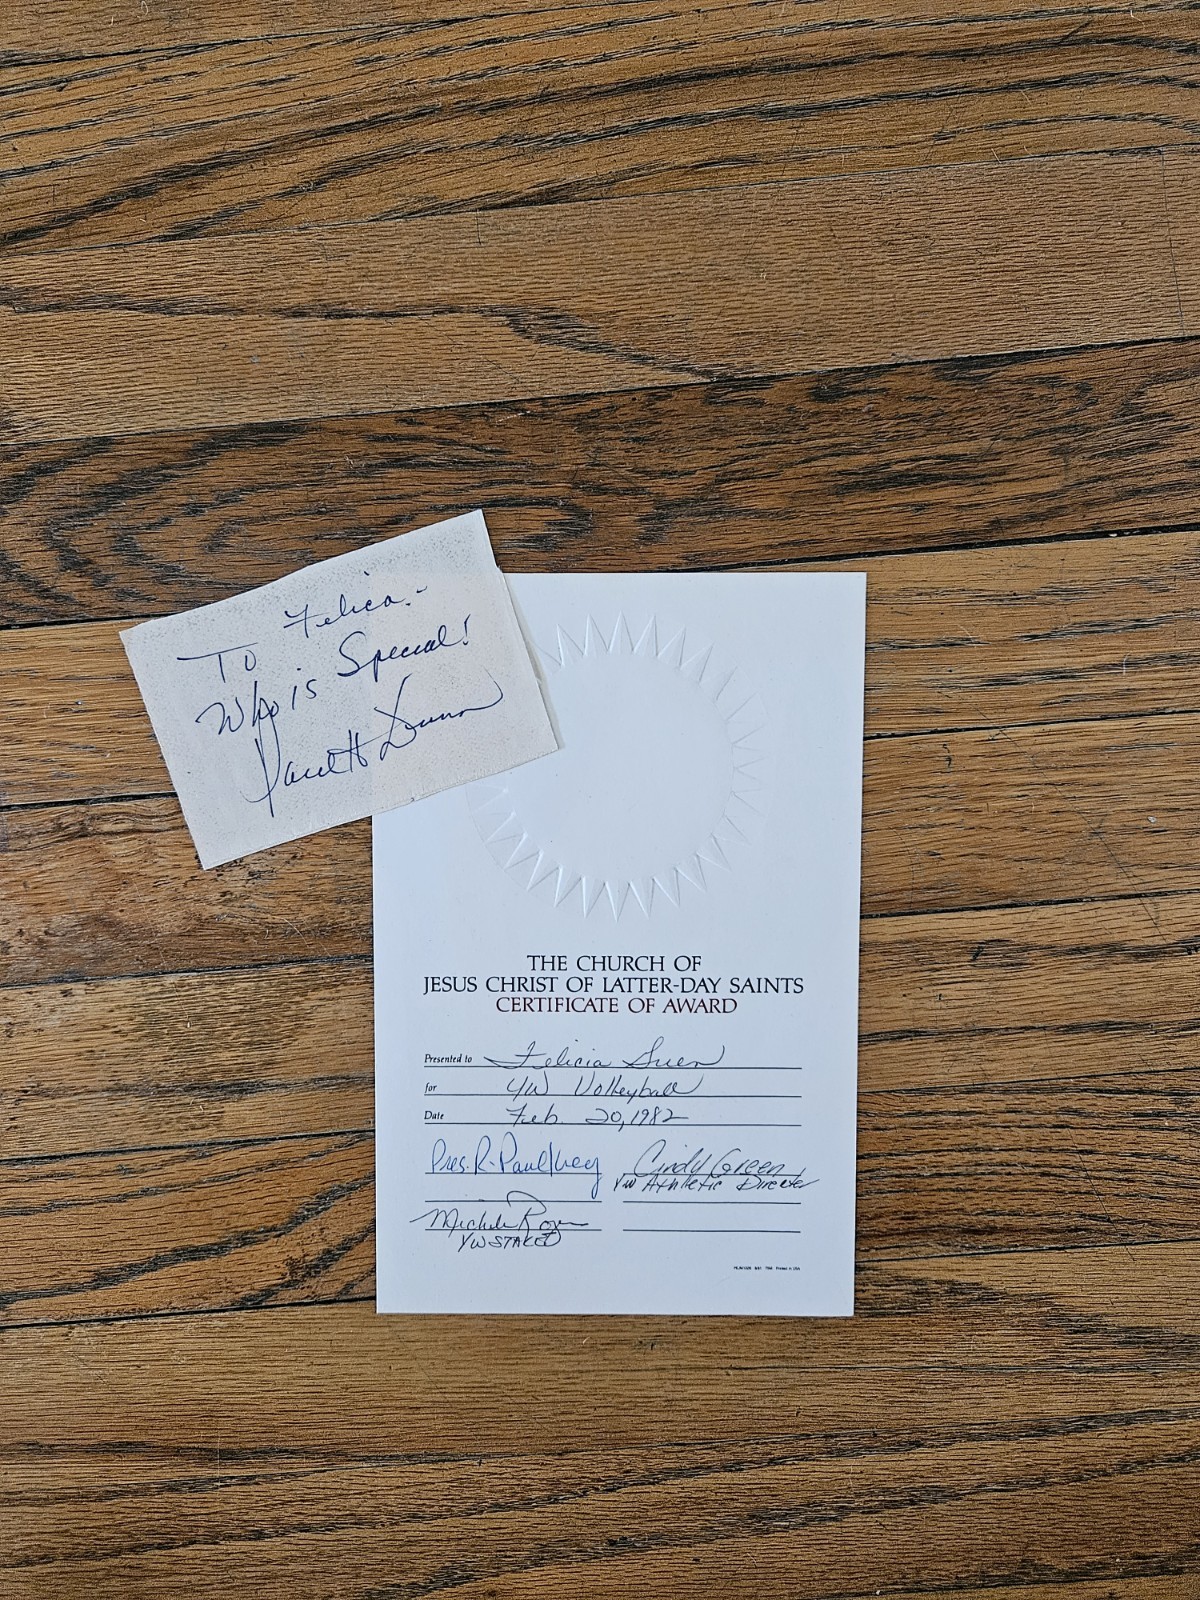 To Felica.-
Who is Special!
Paul H Dunn
THE CHURCH OF
JESUS CHRIST OF LATTER-DAY SAINTS
CERTIFICATE OF AWARD
Presented to Felicia Suen
for YW Volleyball
Date Feb. 20, 1982
Pres. R. Paul
Cindy Green
YW Athletic Director
Michele
YW STAKE
Printed in USA